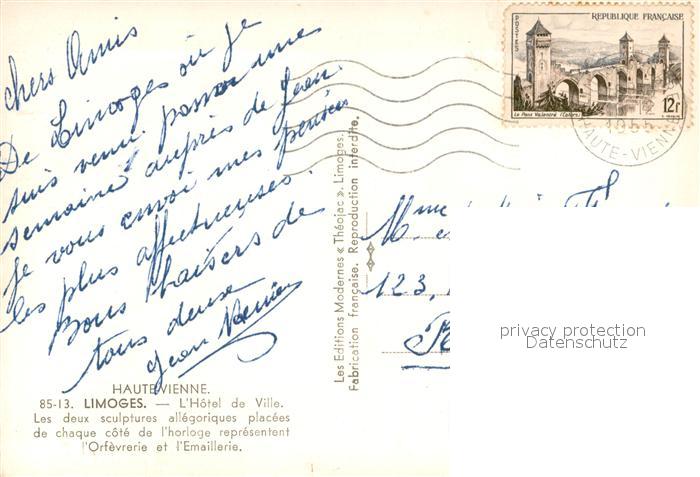 Chers Amis
De Limoges où je
suis venu passer une
semaine auprès de Jean
je vous envoi mes pensées
les plus affectueuses.
Bons baisers de
tous deux
Jean
HAUTE-VIENNE.
85-13. LIMOGES. — L'Hôtel de Ville.
Les deux sculptures allégoriques placées
de chaque côté de l'horloge représentent
l'Orfèvrerie et l'Emaillerie.
Les Editions Modernes « Théojac ». Limoges.
Fabrication française. Reproduction interdite.
POSTES
REPUBLIQUE FRANÇAISE
Le Pont Valentré (Cahors)
12F
1955
HAUTE-VIENNE
Mme et
123,
privacy protection
Datenschutz